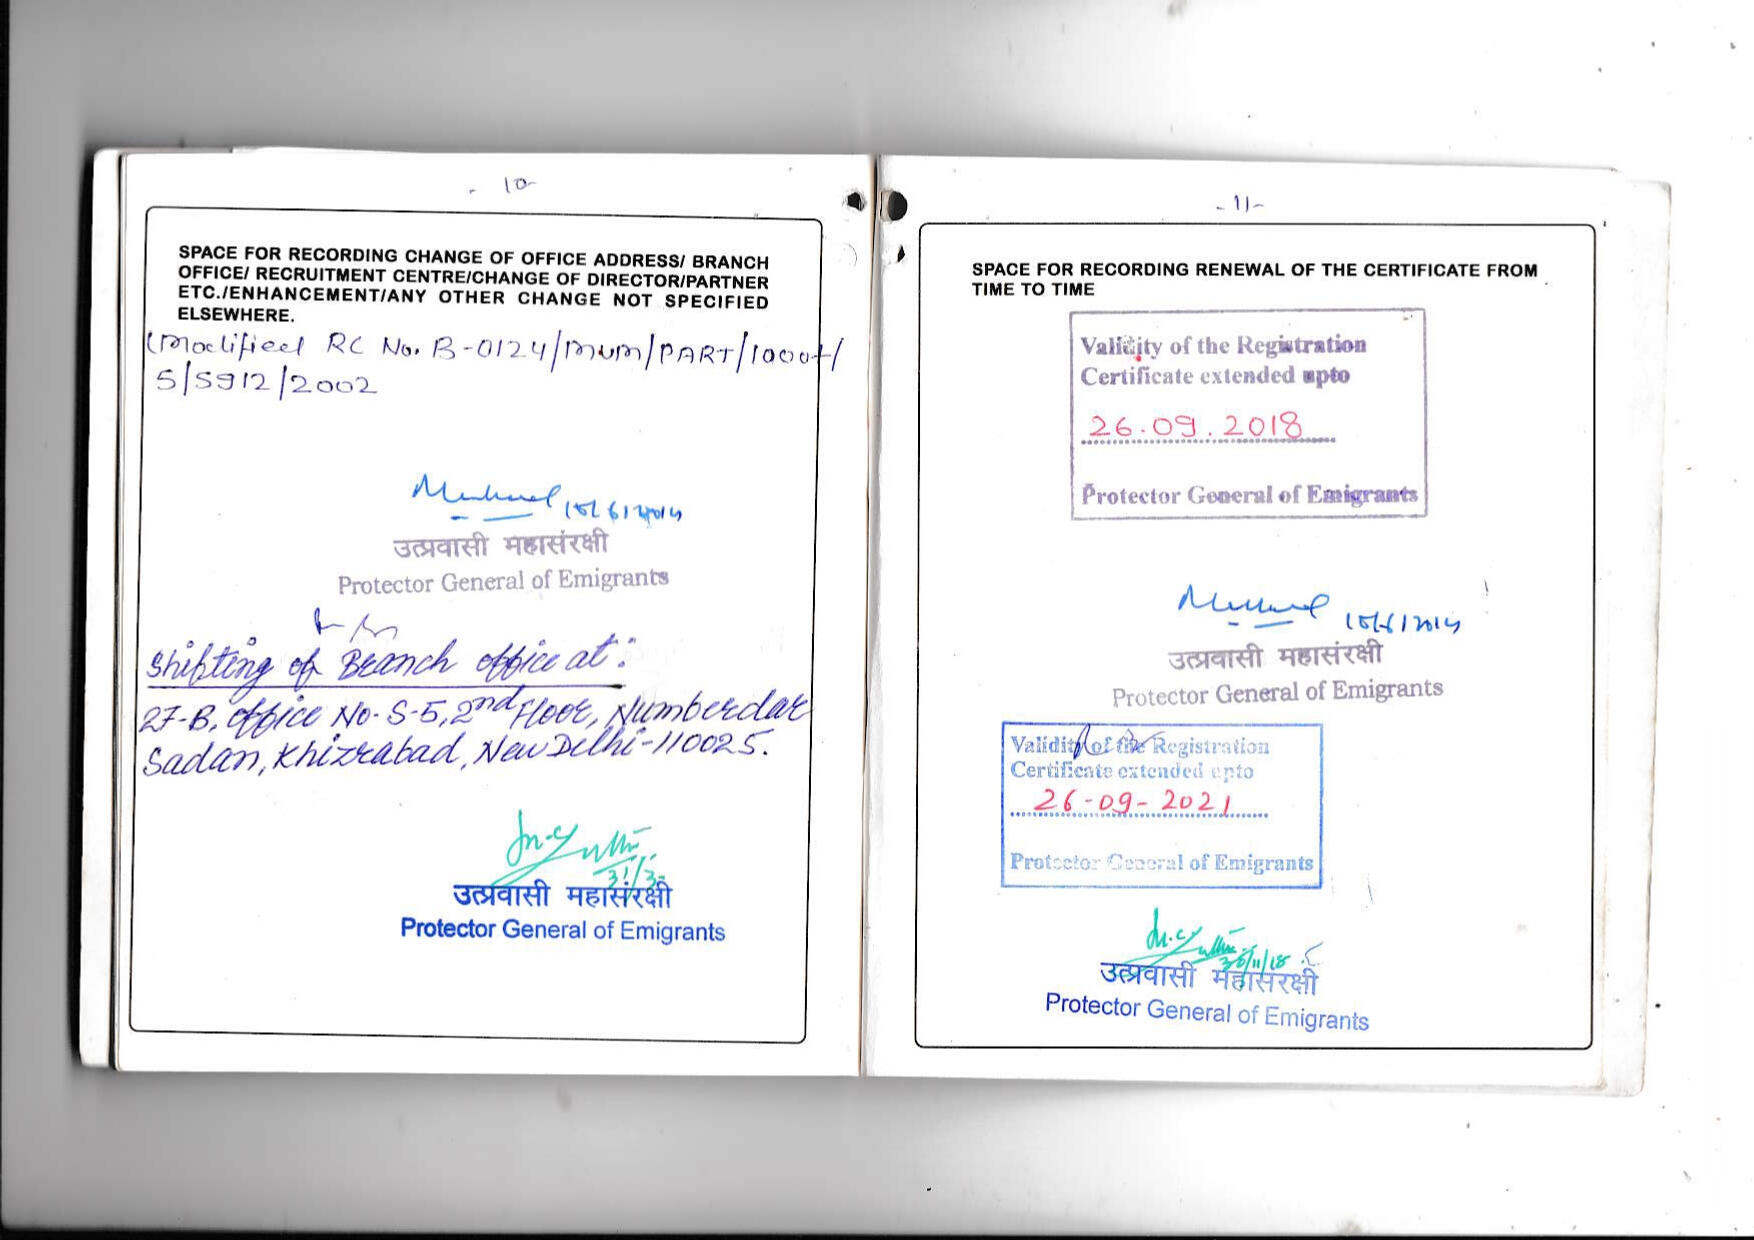 - 10-
SPACE FOR RECORDING CHANGE OF OFFICE ADDRESS/ BRANCH
OFFICE/ RECRUITMENT CENTRE/CHANGE OF DIRECTOR/PARTNER
ETC./ENHANCEMENT/ANY OTHER CHANGE NOT SPECIFIED
ELSEWHERE.
(Modified RC No. B-0124/MUM/PART/1000+/
5/5912/2002
उत्प्रवासी महासंरक्षी
Protector General of Emigrants
Shifting of Branch office at:
27-B, office No-S-5, 2nd Floor, Numberdar
Sadan, Khizrabad, New Delhi-110025.
31/3
उत्प्रवासी महासंरक्षी
Protector General of Emigrants
- 11-
SPACE FOR RECORDING RENEWAL OF THE CERTIFICATE FROM
TIME TO TIME
Validity of the Registration
Certificate extended upto
26.09.2018
Protector General of Emigrants
उत्प्रवासी महासंरक्षी
Protector General of Emigrants
Validity of the Registration
Certificate extended upto
26-09-2021
Protector General of Emigrants
उत्प्रवासी महासंरक्षी
Protector General of Emigrants